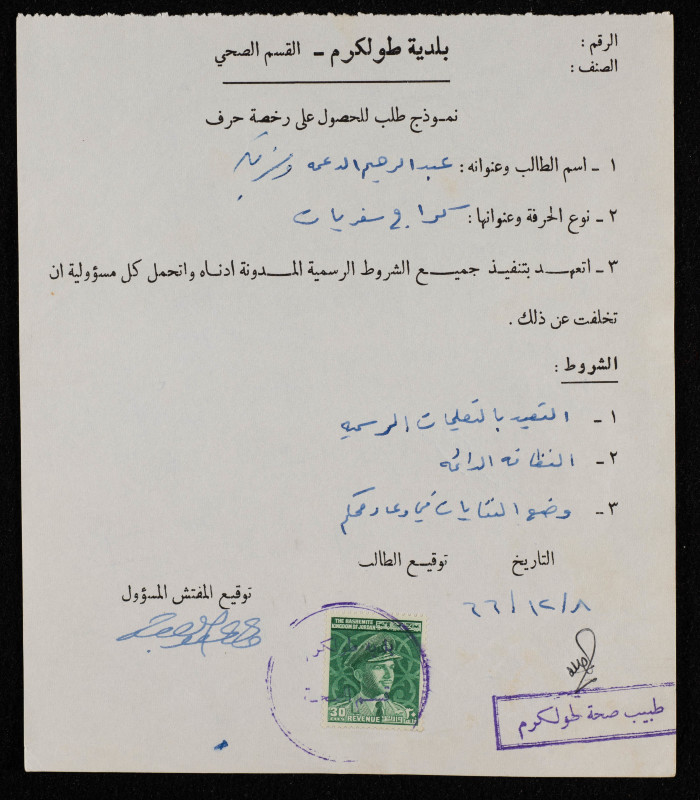 الرقم :
الصنف :
بلدية طولكرم - القسم الصحي
نموذج طلب للحصول على رخصة حرف
١ - اسم الطالب وعنوانه : عبد الرحيم الدعمه وشركاه
٢ - نوع الحرفة وعنوانها : كراج سفريات
٣ - اتعهد بتنفيذ جميع الشروط الرسمية المدونة ادناه واتحمل كل مسؤولية ان
تخلفت عن ذلك .
الشروط :
١ - التقيد بالتعليمات الرسميه
٢ - النظافه الدائمه
٣ - وضع النفايات في وعاء محكم
التاريخ
توقيع الطالب
توقيع المفتش المسؤول
٦٦/١٢/٨
THE HASHEMITE
KINGDOM OF JORDAN
30
FILS
REVENUE
٣٠
طبيب صحة طولكرم